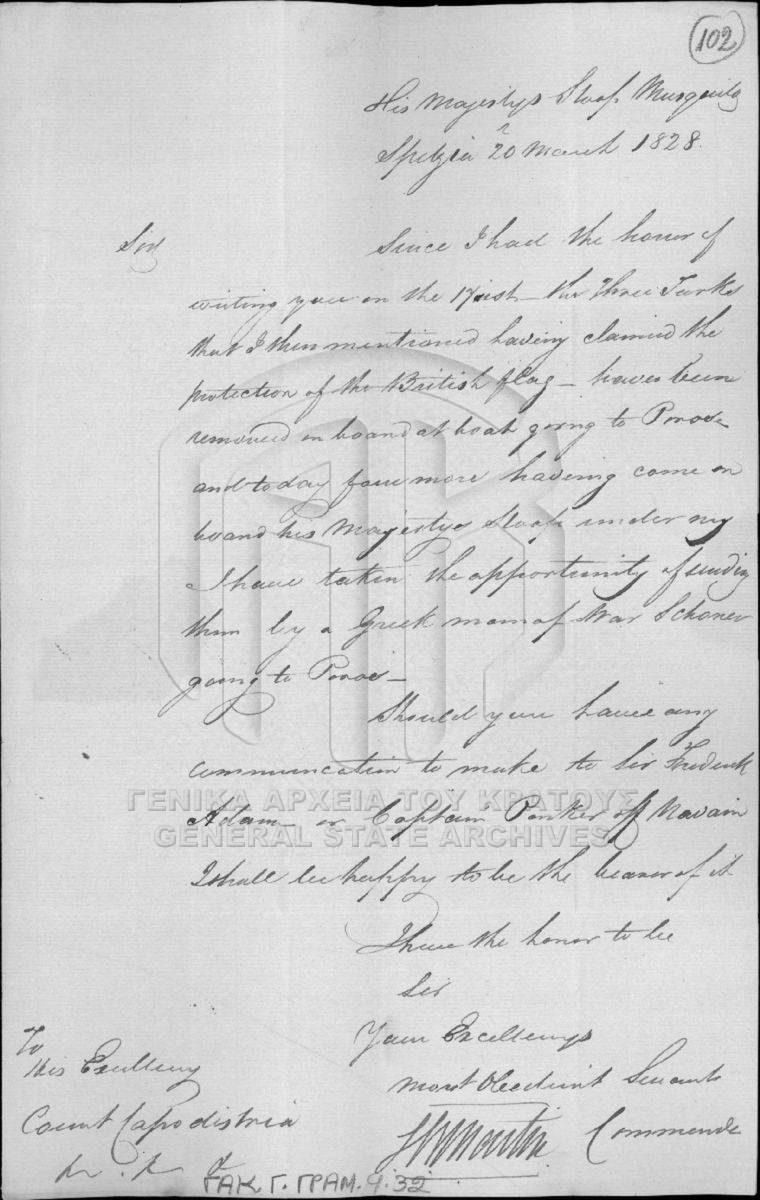 102
His Majestys Sloop Musquito
Spetzia 20 March 1828.
Sir
Since I had the honor of
writing you on the 17 inst - the Three Turks
that I then mentioned having claimed the
protection of the British flag - have been
removed on board a boat going to Poros
and today four more having come on
board his Majestys Sloop under my
I have taken the opportunity of sending
them by a Greek man of War Schoner
going to Poros -
Should you have any
communication to make to Sir Frederick
Adam - or Captain Parker off Navarin
I shall be happy to be the bearer of it
I have the honor to be
Sir
Your Excellencys
most Obedient Servant
Martin Commander
To
His Excellency
Count Capodistria
ΓΕΝΙΚΑ ΑΡΧΕΙΑ ΤΟΥ ΚΡΑΤΟΥΣ
GENERAL STATE ARCHIVES
ΓΑΚ Γ. ΓΡΑΜ. 9.32